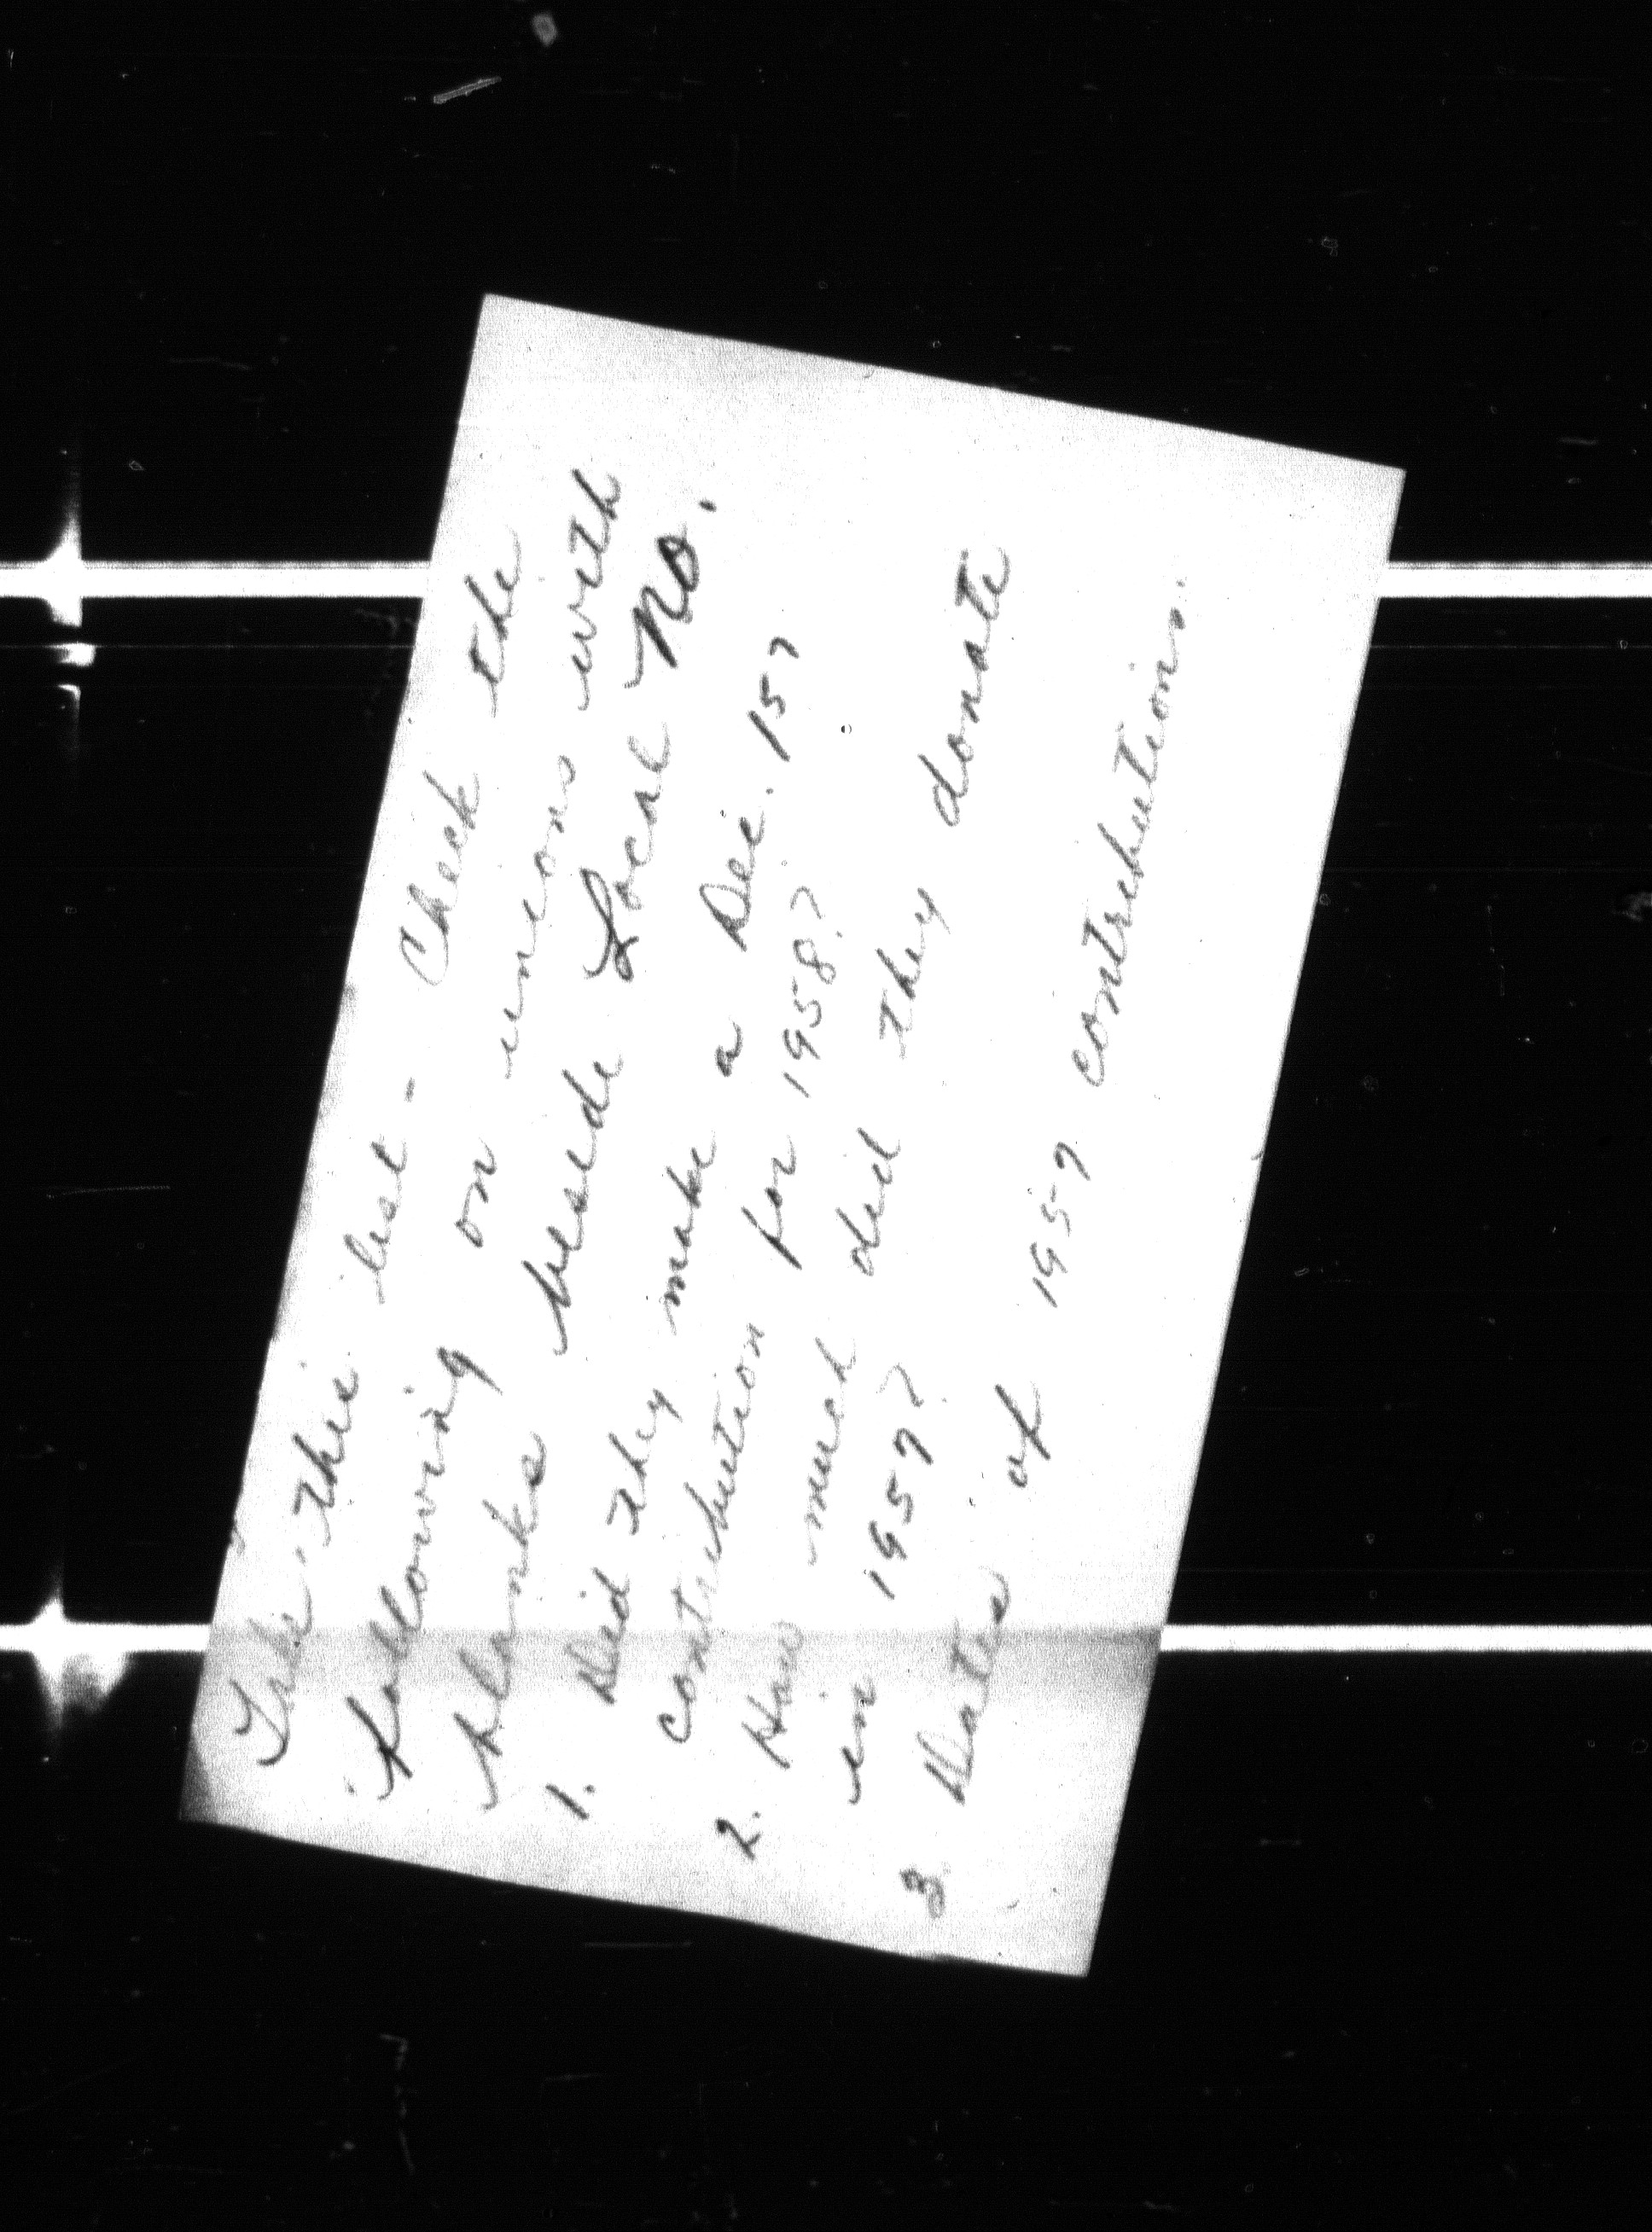 Take this list - Check the
following on unions with
blanks beside Local No.
1. Did they make a Dec. 157
contribution for 1958?
2. How much did they donate
in 1957?
3. Dates of 1957 contributions.